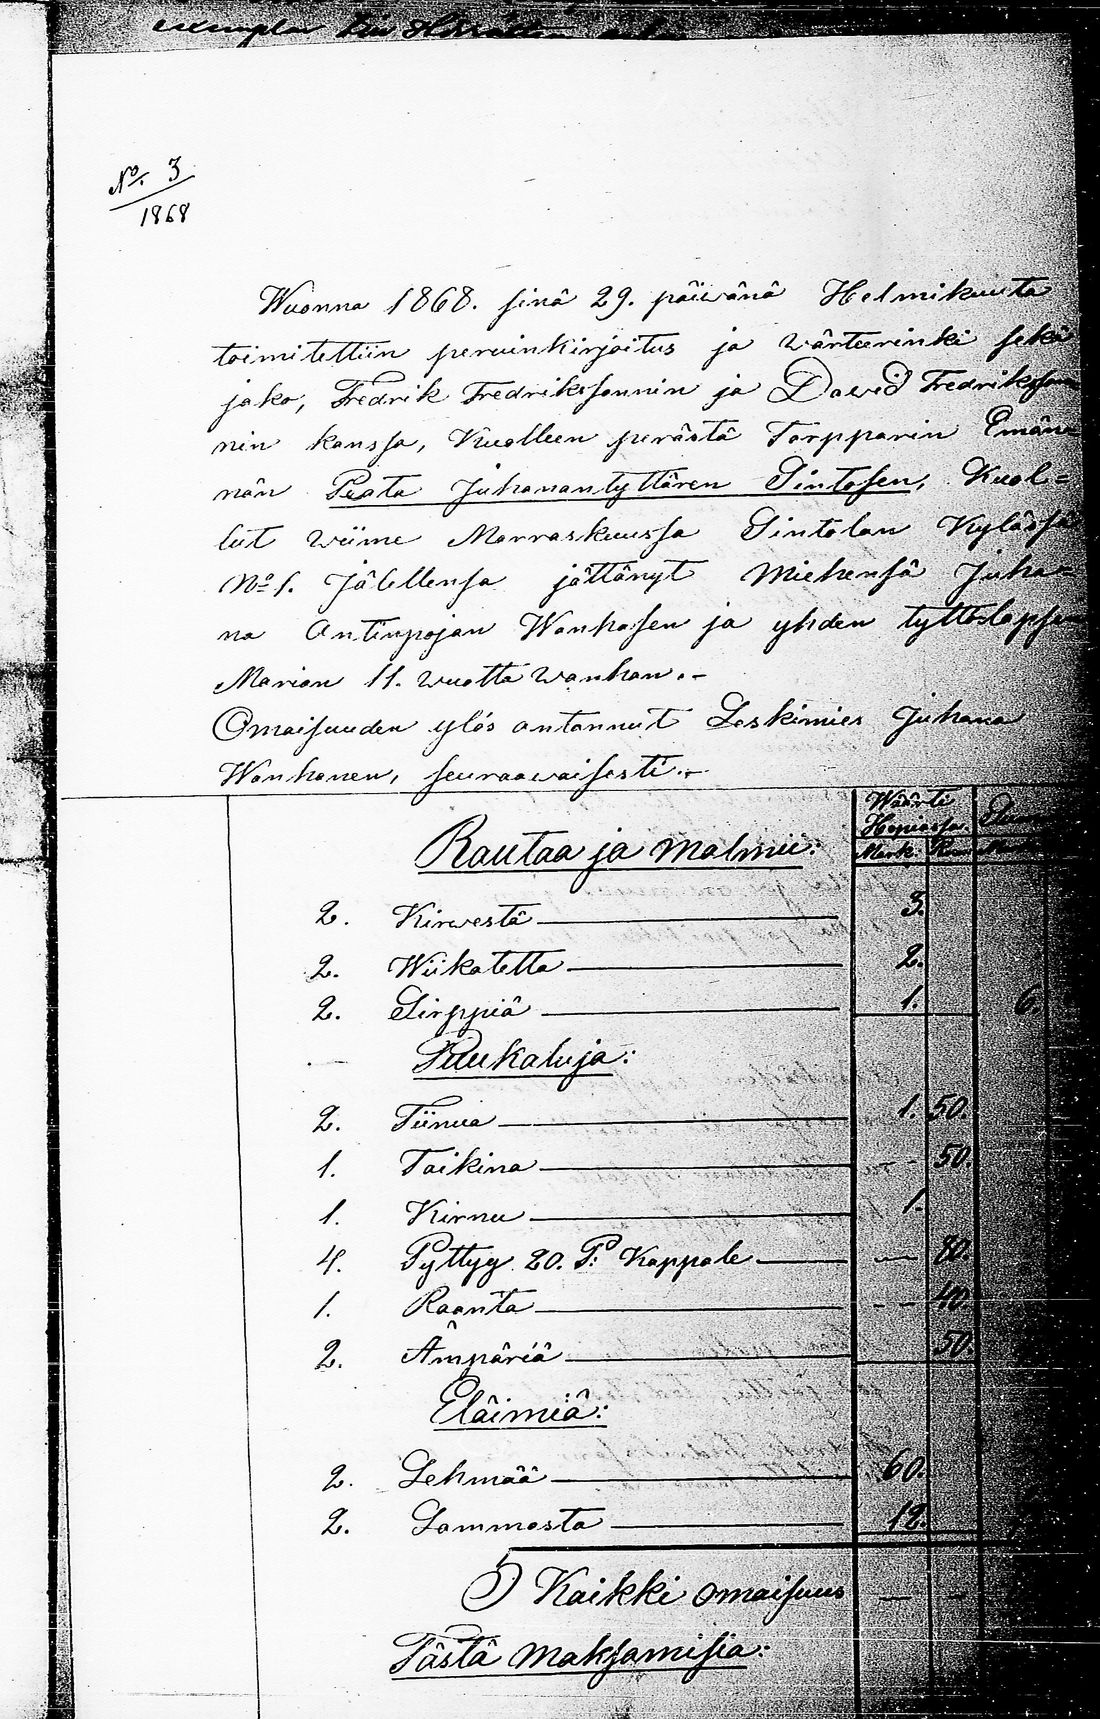 exemplar
No. 3
1868
Wuonna 1868. sinä 29. päiwänä Helmikuuta
toimitettiin peruinkirjoitus ja wärteerinki sekä
jako, Fredrik Fredrikssonnin ja Dawid Fredrikson
nin kanssa, Kuolleen perästä Torpparin Emän
nän Peata Juhanantyttären Sintosen, Kuol=
lut wiime Marraskuussa Sintolan Kylässä
No 1. Jälellensä jättänyt Miehensä Juha=
na Antinpojan Wanhasen ja yhden tyttöslapsen
Marian 11. wuotta wanhan.-
Omaisuuden ylös antannut Leskimies Juhana
Wanhanen, seuraawaisesti.-
Wäärti
Hopiassa
Mark.
Rautaa ja malmii:
2. Kirwestä 3.
2. Wiikatetta 2.
2. Sirppiä 1. 6.
Puukaluja:
2. Tiinua 1. 50.
1. Taikina - - 50.
1. Kirnu 1.
4. Pyttyy 20. P: Kappale - 80.
1. Raanta - - 40.
2. Ämpäriä 50.
Eläimiä:
2. Lehmää 60.
2. Lammasta 12.
Kaikki omaisuus - -
Tästä maksamisia: